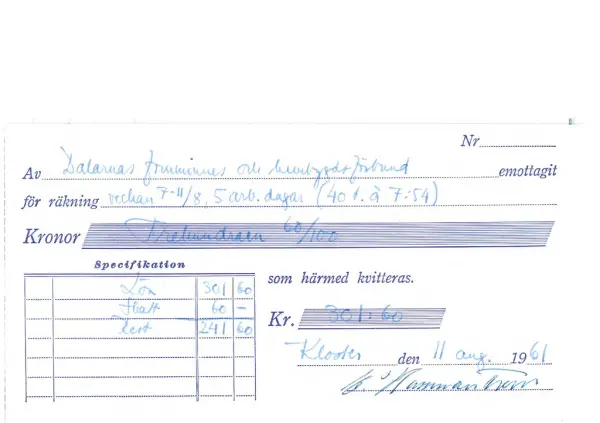 Nr
Av Dalarnas fornminnes och hembygdsförbund emottagit
för räkning veckan 7-11/8, 5 arb.dagar (40 t. à 7:54)
Kronor Trehundraen 60/100
Specifikation
Lön 301 60
Skatt 60 -
Rest 241 60
som härmed kvitteras.
Kr. 301:60
Kloster den 11 aug. 1961